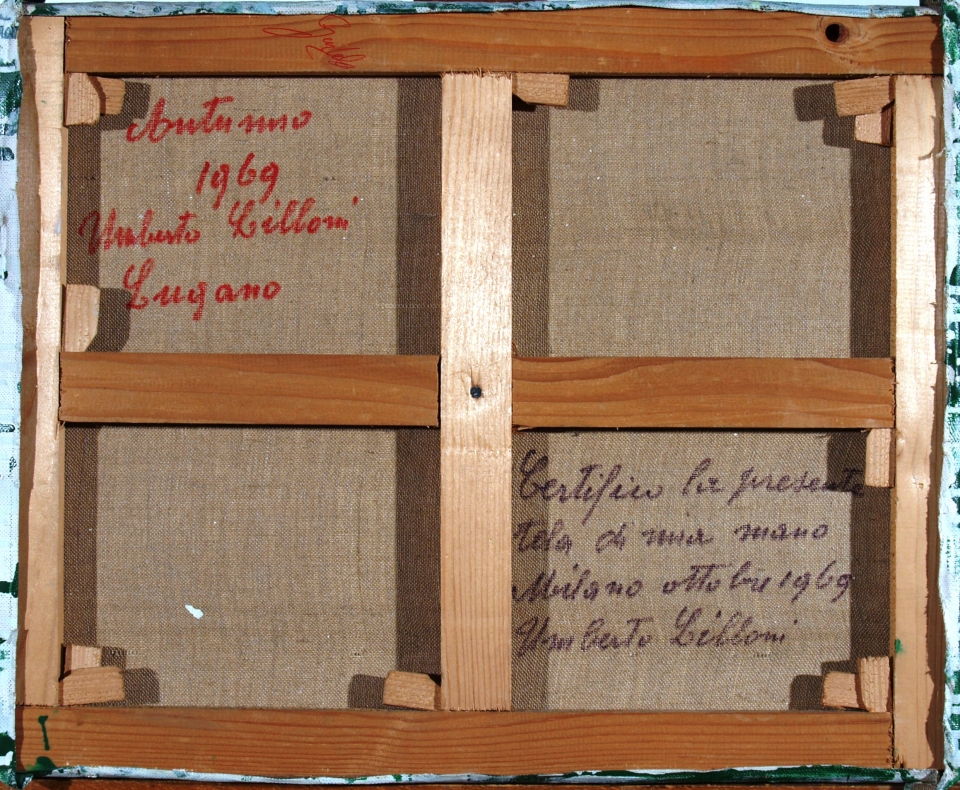 Autunno
1969
Umberto Lilloni
Lugano
Certifico la presente
tela di mia mano
Milano ottobre 1969
Umberto Lilloni